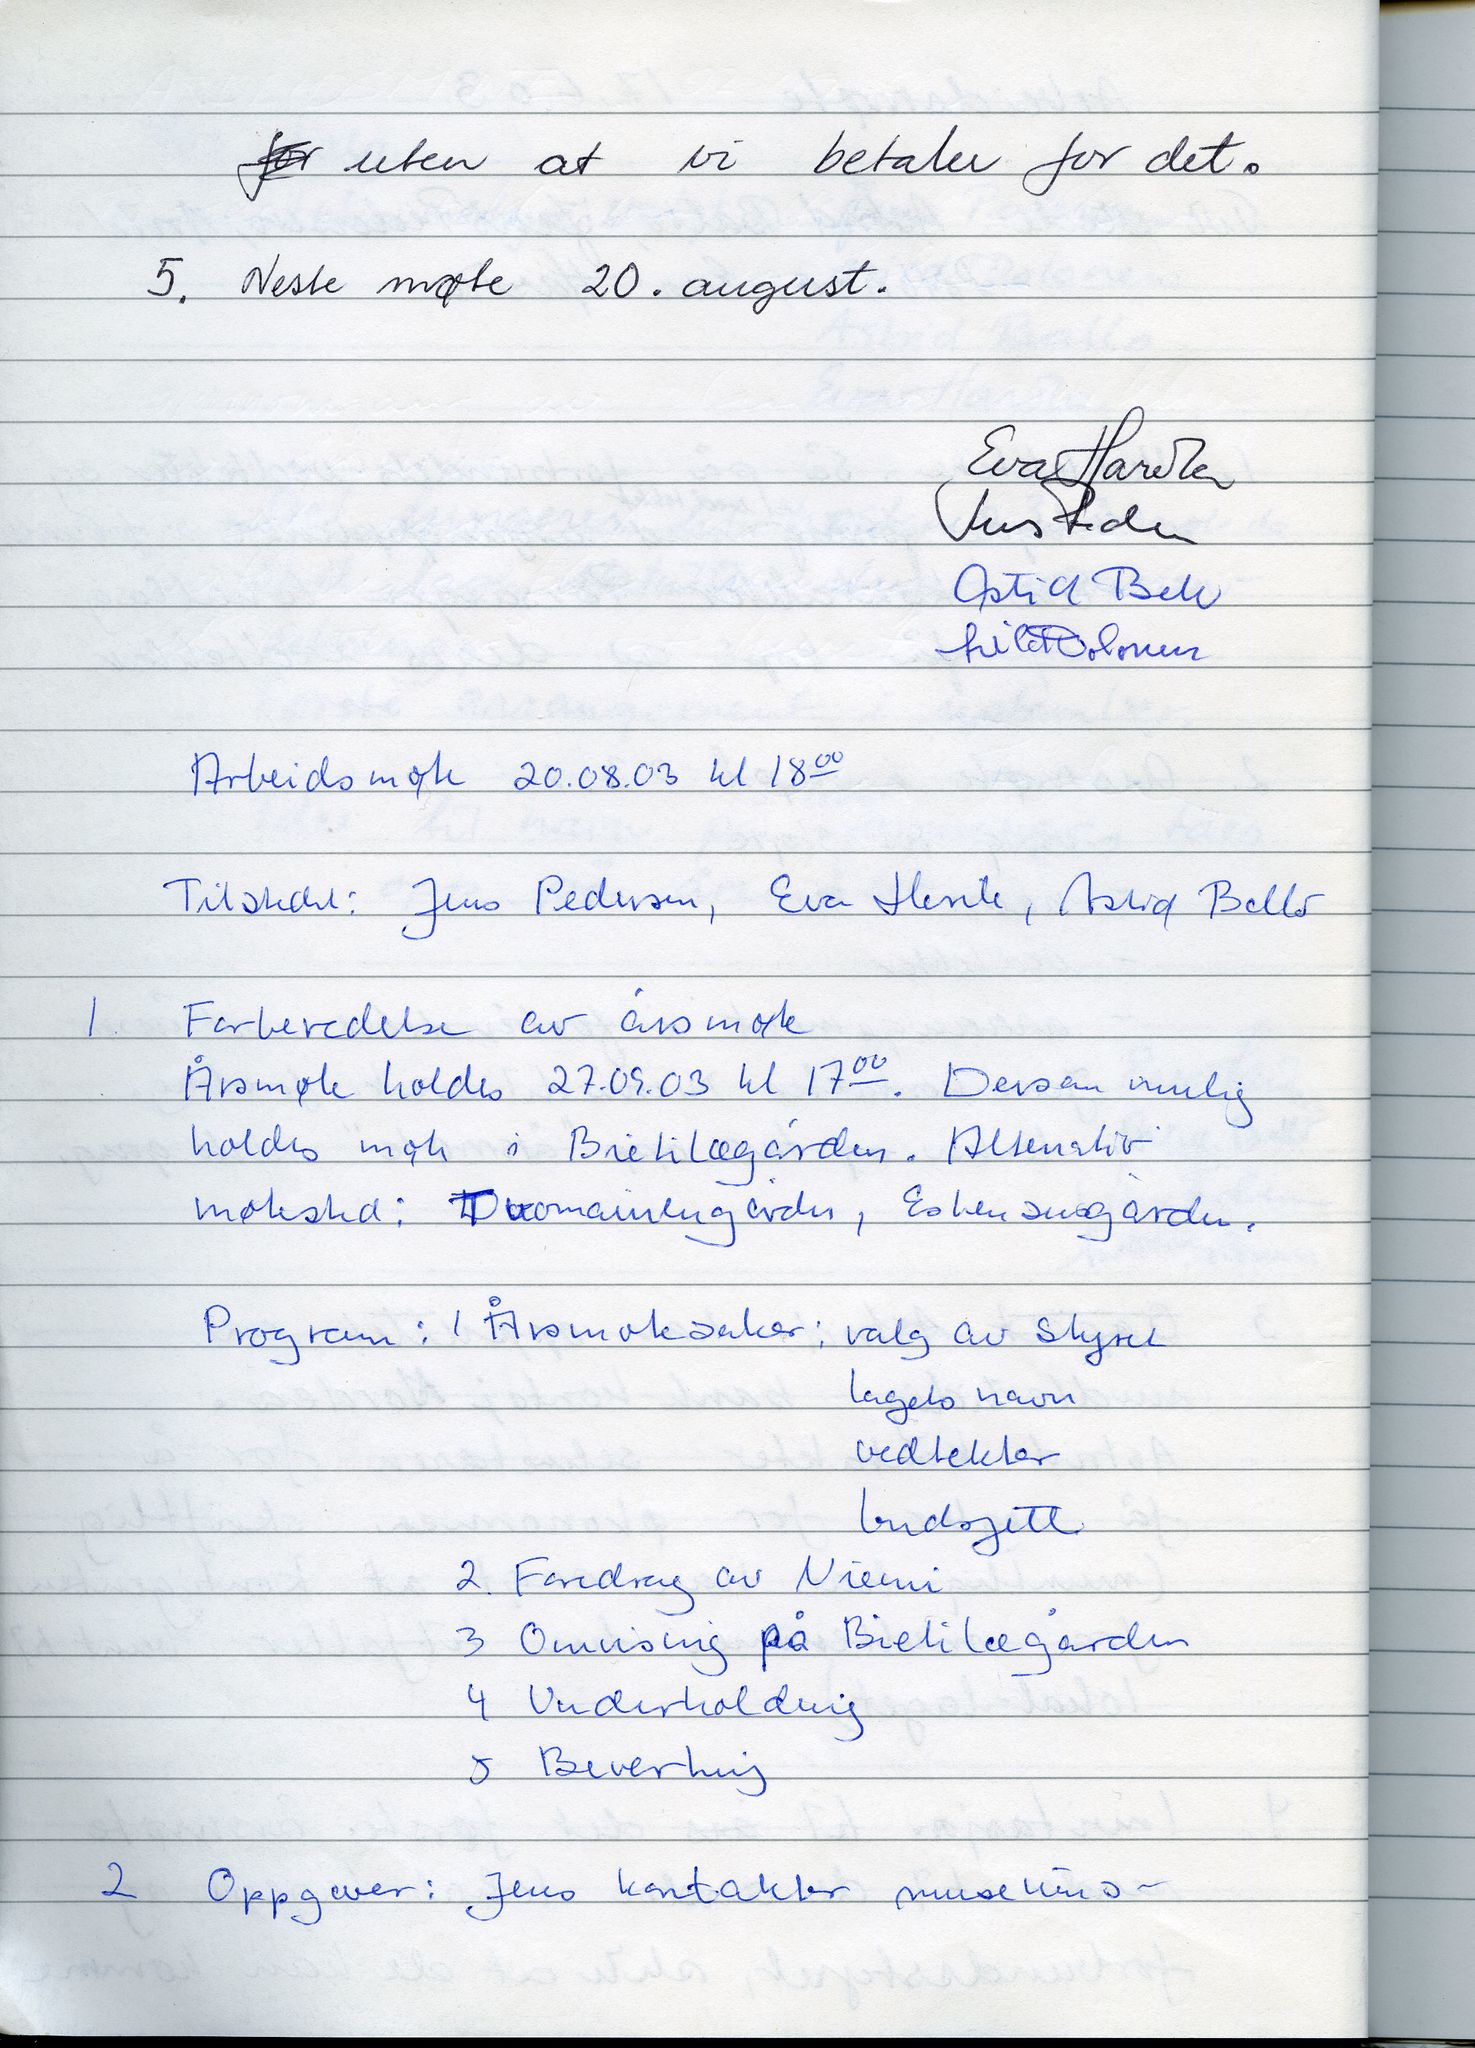 uten at vi betaler for det.
5. Neste møte 20. august.
Eva
Astrid
Arbeidsmøte 20.08.03 kl 18⁰⁰
Tilstede: Jens Pedersen, Eva, Astrid Ballo
1. Forberedelse av årsmøte
Årsmøte holdes 27.09.03 kl 17⁰⁰. Dersom mulig
holdes møte i Bietilægården. Alternativ
møtested: Tuomainengården, Esbensengården.
Program: 1 Årsmøtesaker: valg av styret
lagets navn
vedtekter
budsjett
2. Foredrag av Niemi
3 Omvisnig på Bietilægården
4 Underholdnig
5 Bevertnig
2 Oppgaver: Jens kontakter museums-